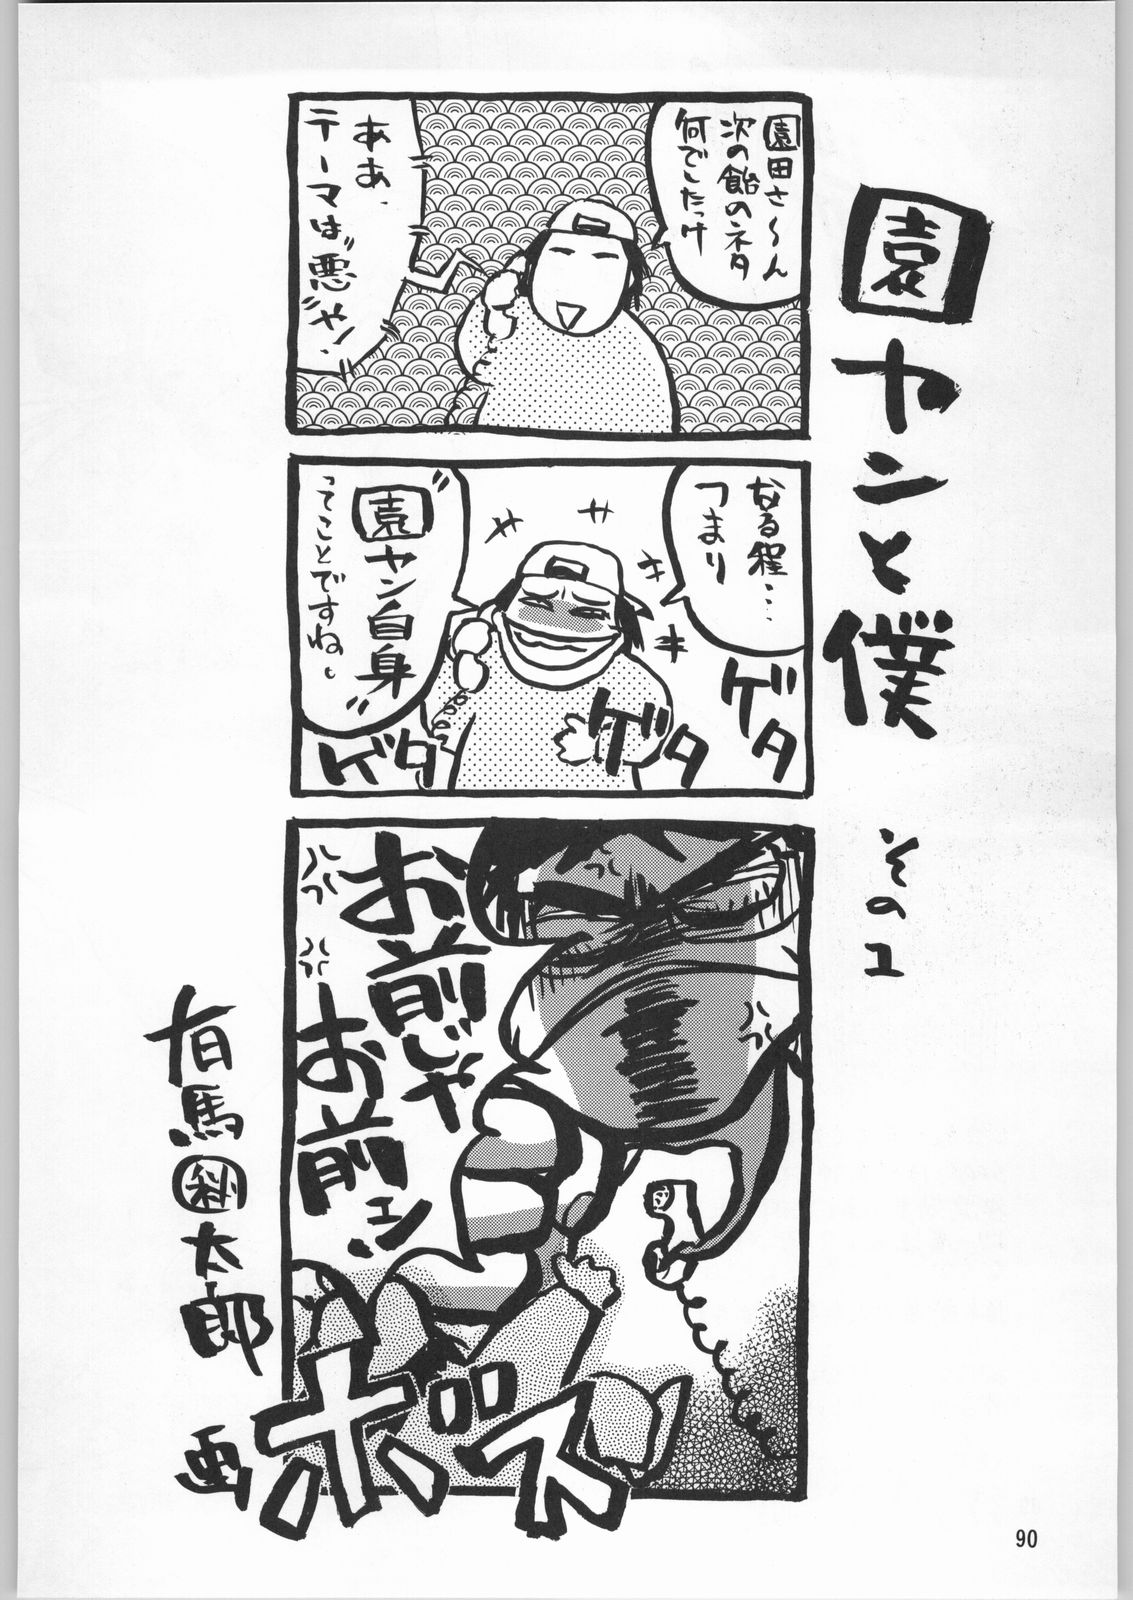 園ヤンと僕
その1
園田さ〜ん
次の飴のネタ
何でしたっけ
ああ、
テーマは"悪"やン.
なる程…
つまり
"園ヤン自身"
ってことですね。
ゲタ
ゲタ
ゲタ
お前じゃ
お前ェン
ボズ
有馬㊙太郎
画
90